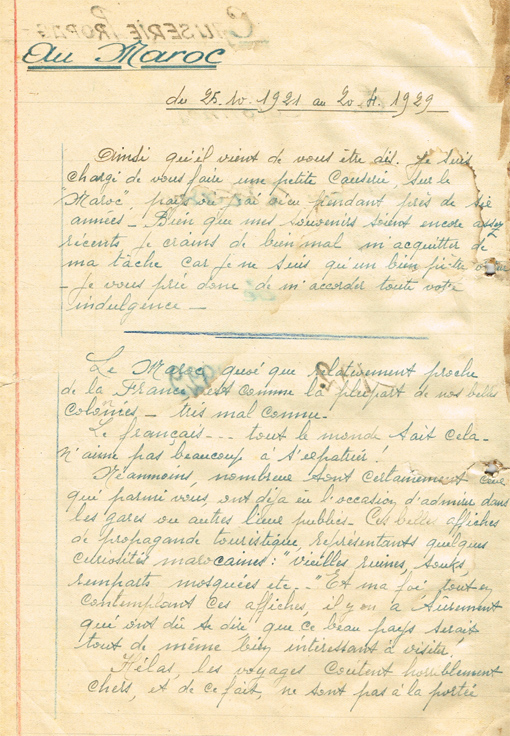 Au Maroc
du 25.10.1921 au 20.4.1929
Ainsi qu'il vient de vous être dit. Je suis
chargé de vous faire une petite Causerie, sur le
"Maroc", pays où j'ai vécu pendant près de six
années - Bien que mes souvenirs soient encore assez
récents, je crains de bien mal m'acquitter de
ma tâche car je ne suis qu'un bien piètre
- Je vous prie donc de m'accorder toute votre
indulgence -
Le Maroc, quoi que relativement proche
de la France est comme la plupart de nos belles
colonies - très mal connu -
Le français - - - tout le monde sait cela -
N'aime pas beaucoup à s'expatrier !
Néanmoins, nombreux sont certainement ceux
qui parmi vous, ont déja eu l'occasion d'admirer dans
les gares ou autres lieux publics - Ces belles affiches
de propagande touristique, représentants quelques
curiosités marocaines : "vieilles ruines, souks,
remparts, mosquées etc - " Et ma foi, tout en
contemplant ces affiches, il y en a sûrement
qui ont dû se dire que ce beau pays serait
tout de même bien intéressant à visiter.
Hélas, les voyages coutent horriblement
chers, et de ce fait, ne sont pas à la portée